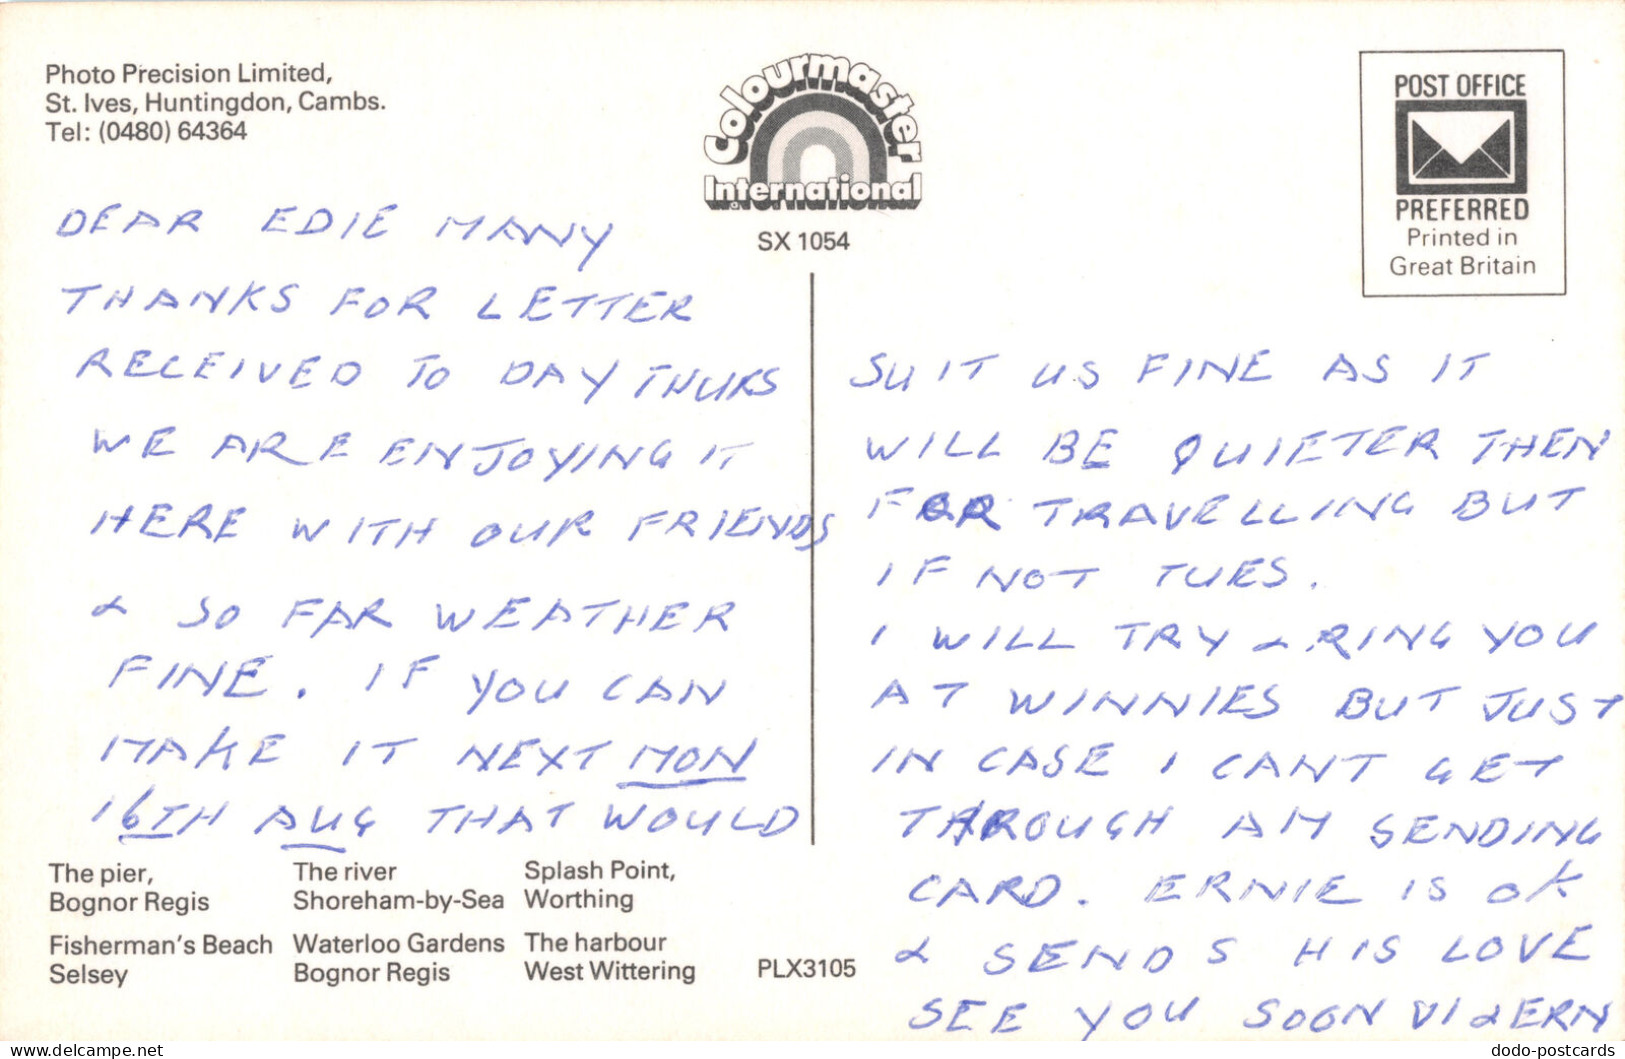 Photo Precision Limited,
St. Ives, Huntingdon, Cambs.
Tel: (0480) 64364
Colourmaster
International
SX 1054
POST OFFICE
PREFERRED
Printed in
Great Britain
DEAR EDIE MANY
THANKS FOR LETTER
RECEIVED TO DAY THURS
WE ARE ENJOYING IT
HERE WITH OUR FRIENDS
& SO FAR WEATHER
FINE. IF YOU CAN
MAKE IT NEXT MON
16TH AUG THAT WOULD
SUIT US FINE AS IT
WILL BE QUIETER THEN
FOR TRAVELLING BUT
IF NOT TUES.
I WILL TRY & RING YOU
AT WINNIES BUT JUST
IN CASE I CANT GET
THROUGH AM SENDING
CARD. ERNIE IS OK
& SENDS HIS LOVE
SEE YOU SOON VI & ERN
The pier,
Bognor Regis
The river
Shoreham-by-Sea
Splash Point,
Worthing
Fisherman's Beach
Selsey
Waterloo Gardens
Bognor Regis
The harbour
West Wittering
PLX3105
Delcampe.net
dodo-postcards